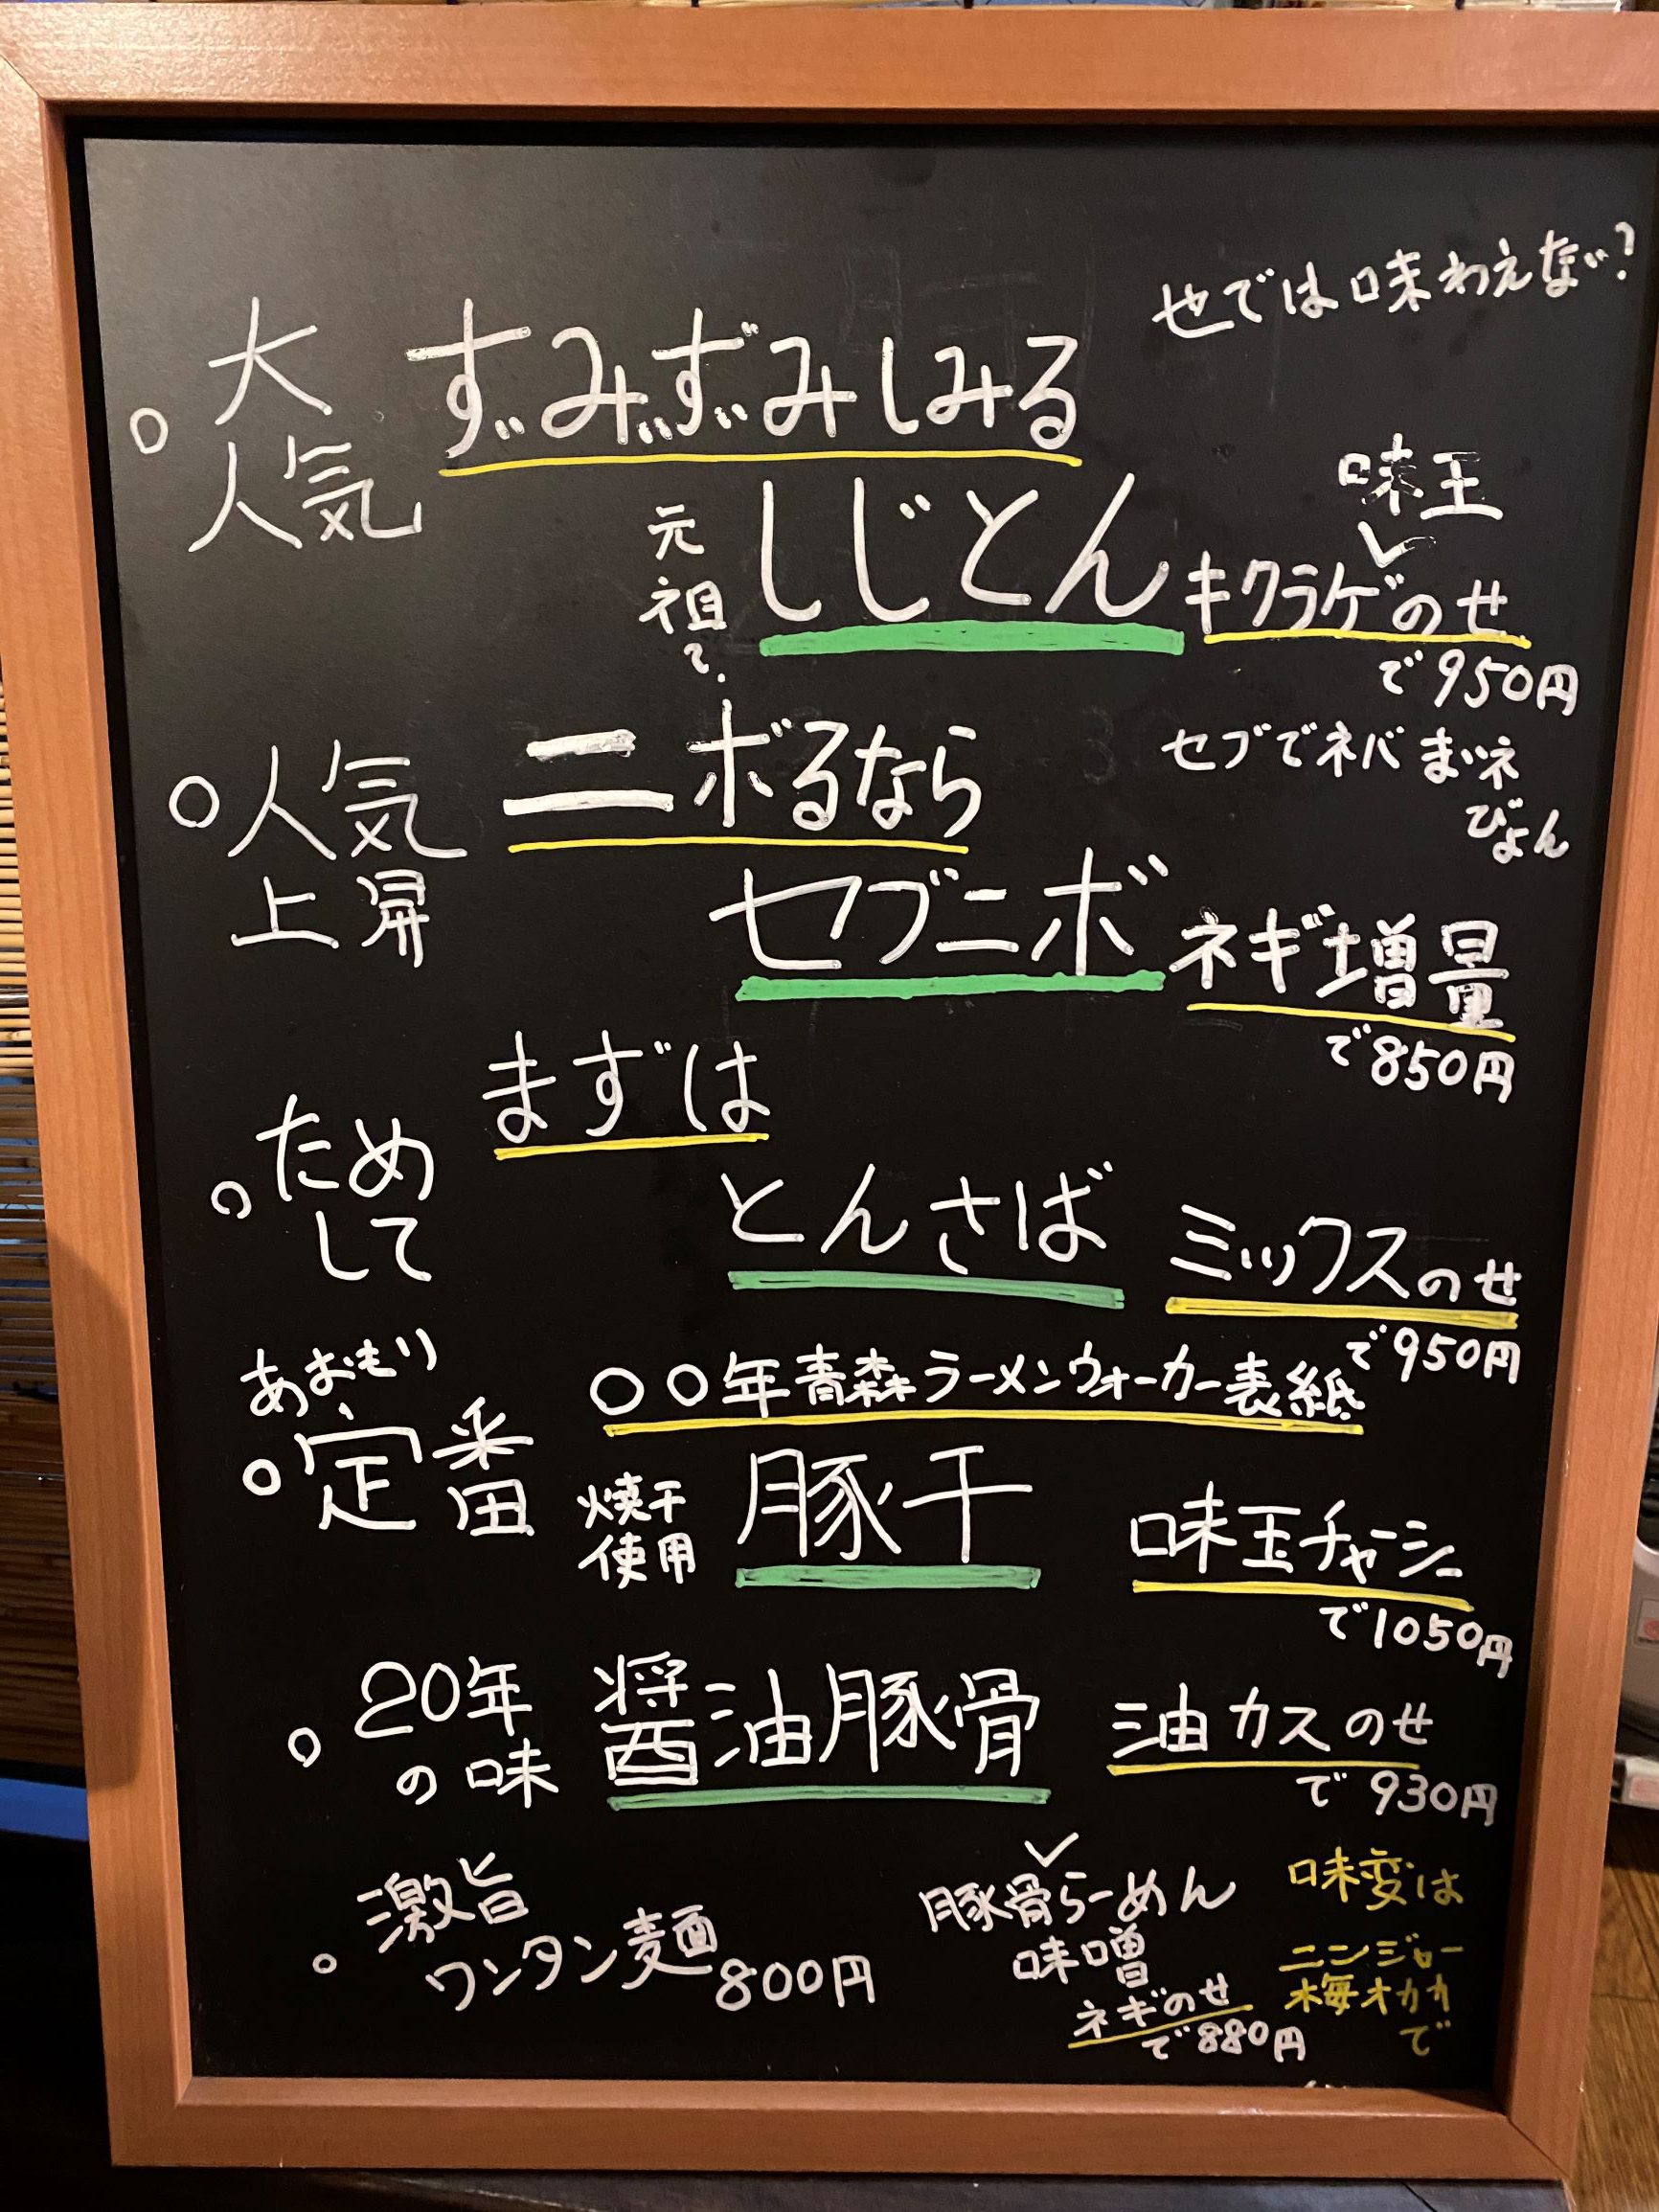 也では味わえない?
大
人気
ずみずみしみる
味玉
元
祖で
しじとん
キクラゲのせ
で950円
人気
上昇
ニボるなら
セブでネバまいネ
びょん
セブニボ
ネギ増量
で850円
ため
して
まずは
とんさば
ミックスのせ
で950円
あおもり
定番
〇〇年青森ラーメンウォーカー表紙
焼干
使用
豚干
味玉チャーシー
で1050円
20年
の味
醤油豚骨
油カスのせ
で930円
激旨
ワンタン麺
800円
豚骨らーめん
味噌
ネギのせ
で880円
味変は
ニンジョー
梅オカカ
で